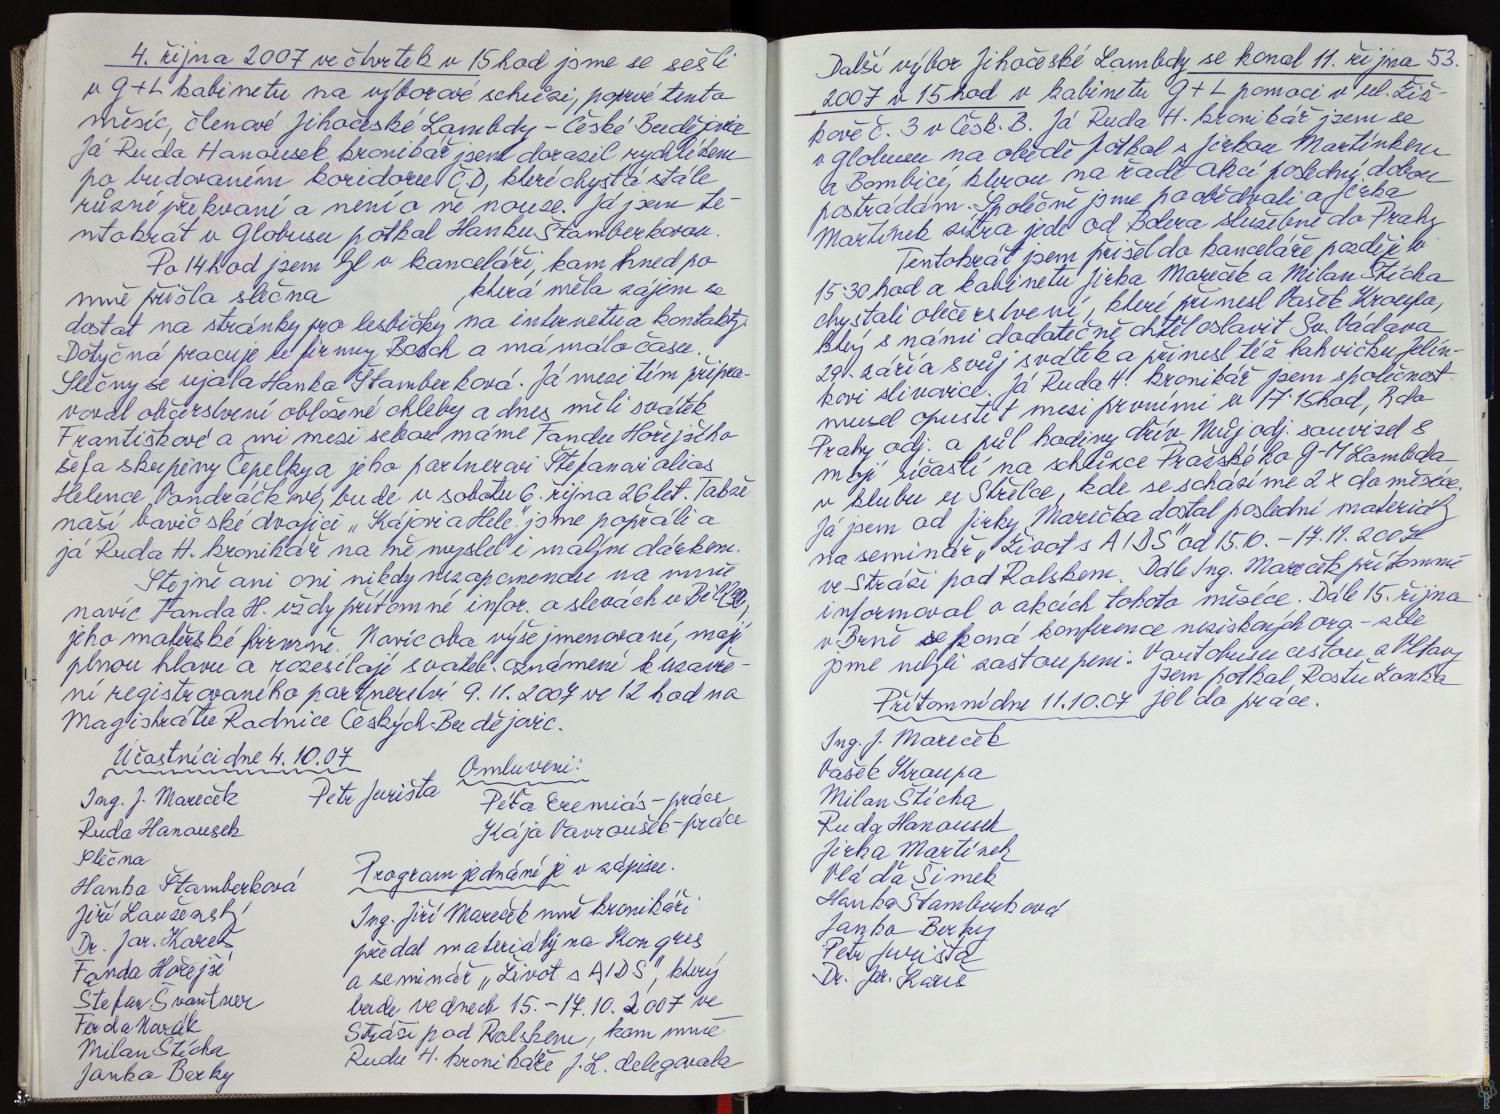 4. října 2007 ve čtvrtek v 15 hod jsme se sešli
v G+L kabinetu na výborové schůzi, poprvé tento
měsíc, členové Jihočeské Lambdy - České Budějovice
Já Ruda Hanousek kronikář jsem dorazil rychlíkem
po budovaném koridoru ČD, které chystá stále
různé překvaní a není o ně nouze. Já jsem te-
ntokrát v Globusu potkal Hanku Štamberkovou.
Po 14 hod jsem šel v kanceláři, kam hned po
mně přišla slečna , která měla zájem se
dostat na stránky pro lesbičky na internetu a kontakty.
Dotyčná pracuje u firmy Bosch a má málo času.
Slečny se ujala Hanka Štamberková. Já mezitím připra-
voval občerstvení obložené chleby a dnes měli svátek
Františkové a mi mezi sebou máme Fandu Hořejšího
šéfa skupiny Čepelky a jeho partnerovi Štefanovi alias
Helence Vondráčkové, bude v sobotu 6. října 26 let. Takže
naší bavičské dvojici „Kájovi a Hele" jsme popřáli a
já Ruda H. kronikář na ně myslel i malým dárkem.
Stejně ani oni nikdy nezapomenou na mně
navíc Fanda H. vždy přítomné infor. o slevách v
jeho mateřské firmě. Navíc oba výše jmenovaní, mají
plnou hlavu a rozesílají svateb. oznámení k uzavře-
ní registrovaného partnerství 9.11.2007 ve 12 hod na
Magistrátu Radnice Českých-Budějovic.
Účastníci dne 4.10.07
Omluveni:
Ing. J. Mareček
Petr Jurišta
Péťa Eremiáš - práce
Ruda Hanousek
Kája Vavroušek - práce
Slečna
Hanka Štamberková
Jiří Lauženský
Dr. Jar. Kareš
Fanda Hořejší
Štefan Švantner
Ferda Novák
Milan Štícha
Janko Berky
Program jednání je v zápisu.
Ing. Jiří Mareček mně kronikáři
předal materiály na Kongres
a seminář „Život s AIDS", který
bude ve dnech 15. - 17.10. 2007 ve
Stráži pod Ralskem, kam mně
Rudu H. kronikáře J.L. delegovala
53.
Další výbor Jihočeské Lambdy se konal 11. října
2007 v 15 hod v kabinetu G+L pomoci v ul. Žiž-
kově č. 3 v Česk. B. Já Ruda H. kronikář jsem se
v Globusu na obědě potkal s Jirkou Martínkem
a Bambicí, kterou na řadě akcí poslední dobou
postrádám. Společně jsme poobědvali a Jirka
Martínek zítra jede od služebně do Prahy
Tentokrát jsem přišel do kanceláře později v
15 30 hod a kabinetu Jirka Mareček a Milan Štícha
chystali občerstvení, které přinesl Vašek Kroupa,
který s námi dodatečně chtěl oslavit Sv. Václava
29. září a svůj svátek a přinesl též lahvičku Jelín-
kovi slivovice. Já Ruda H. kronikář jsem společnost
musel opustit mezi prvními v 17 15 hod, R do
Prahy odj. a půl hodiny dřív. Můj odj. souvisel s
mojí účastí na schůzce Pražského G-M Lambda
v klubu u Střelce, kde se scházíme 2x do měsíce.
Já jsem od Jirky Marečka dostal poslední materiály
na seminář „Život s AIDS" od 15.10. - 17.11. 2007
ve Stráži pod Ralskem. Dále Ing. Mareček přítomné
informoval o akcích tohoto měsíce. Dále 15. října
v Brně se koná konference neziskových org - zde
jsme nebyli zastoupeni. V autobusu cestou z Vltavy
jsem potkal Rosťu Zonka
jel do práce.
Přítomní dne 11.10.07
Ing. J. Mareček
Vašek Kroupa
Milan Štícha
Ruda Hanousek
Jirka Martínek
Vláďa Šimek
Hanka Štamberková
Janko Berky
Petr Jurišta
Dr. Jar. Kareš